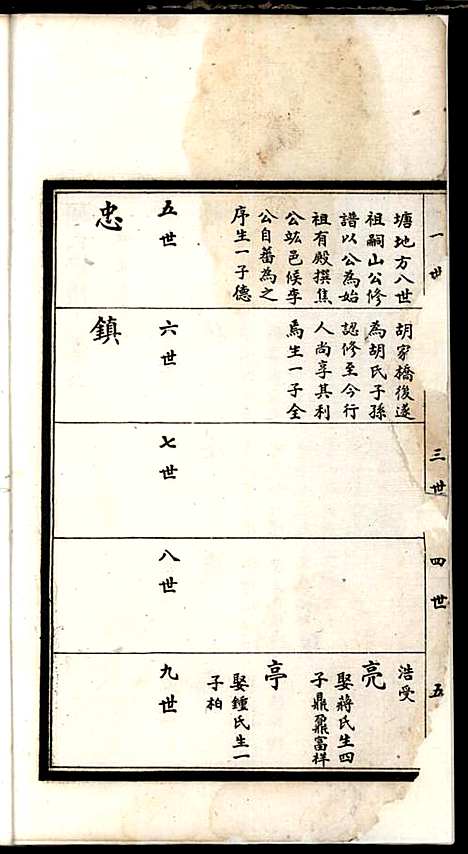 一世
三世
四世
五
塘地方八世
祖嗣山公修
譜以公為始
祖有殿撰焦
公竑邑候李
公自蕃為之
序生一子德
胡家橋後遂
為胡氏子孫
認修至今行
人尚享其利
焉生一子全
浩受
亮
娶蔣氏生四
子鼎鼐富祥
亭
娶鍾氏生一
子柏
五世
六世
七世
八世
九世
忠
鎮